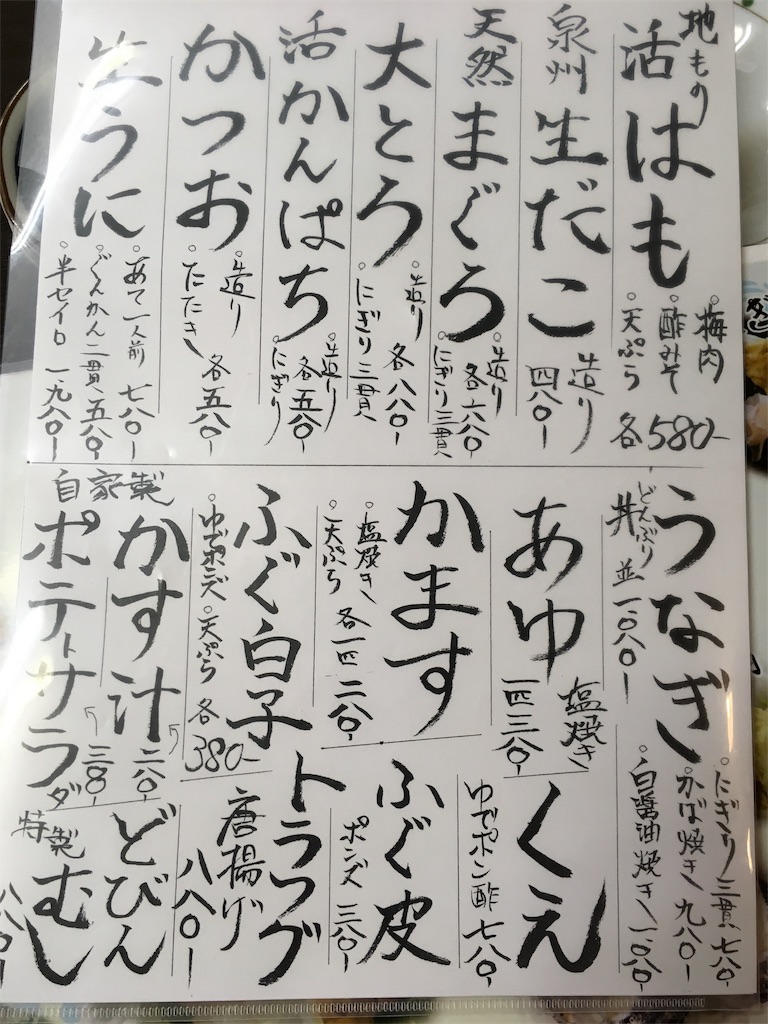 地もの
活はも
。梅肉
。酢みそ
。天ぷら
各580-
泉州
生だこ
造り
四八〇-
天然
まぐろ
。造り
。にぎり三貫
各六八〇-
大とろ
。造り
。にぎり三貫
各八八〇-
活かんぱち
。造り
。にぎり
各五八〇-
かつお
。造り
。たたき
各五八〇-
生うに
。あて一人前 七八〇-
。ぐんかん二貫 五八〇-
。半セイロ 一、九八〇-
うなぎ
。どんぶり
丼 並 一、〇八〇-
。にぎり三貫 七八〇-
。かば焼き 九八〇-
。白醤油焼き 一、〇八〇-
あゆ
塩焼き
一匹 三八〇-
かます
。塩焼き
。天ぷら
各一匹 二八〇-
ふぐ白子
。ゆでポンズ
。天ぷら
各380-
かす汁
二八〇-
自家製
ポテトサラダ
三八〇-
くえ
ゆでポン酢 七八〇-
ふぐ皮
ポンズ 三八〇-
トラフグ
唐揚げ
八八〇-
特製
どびん
むし
八八〇-